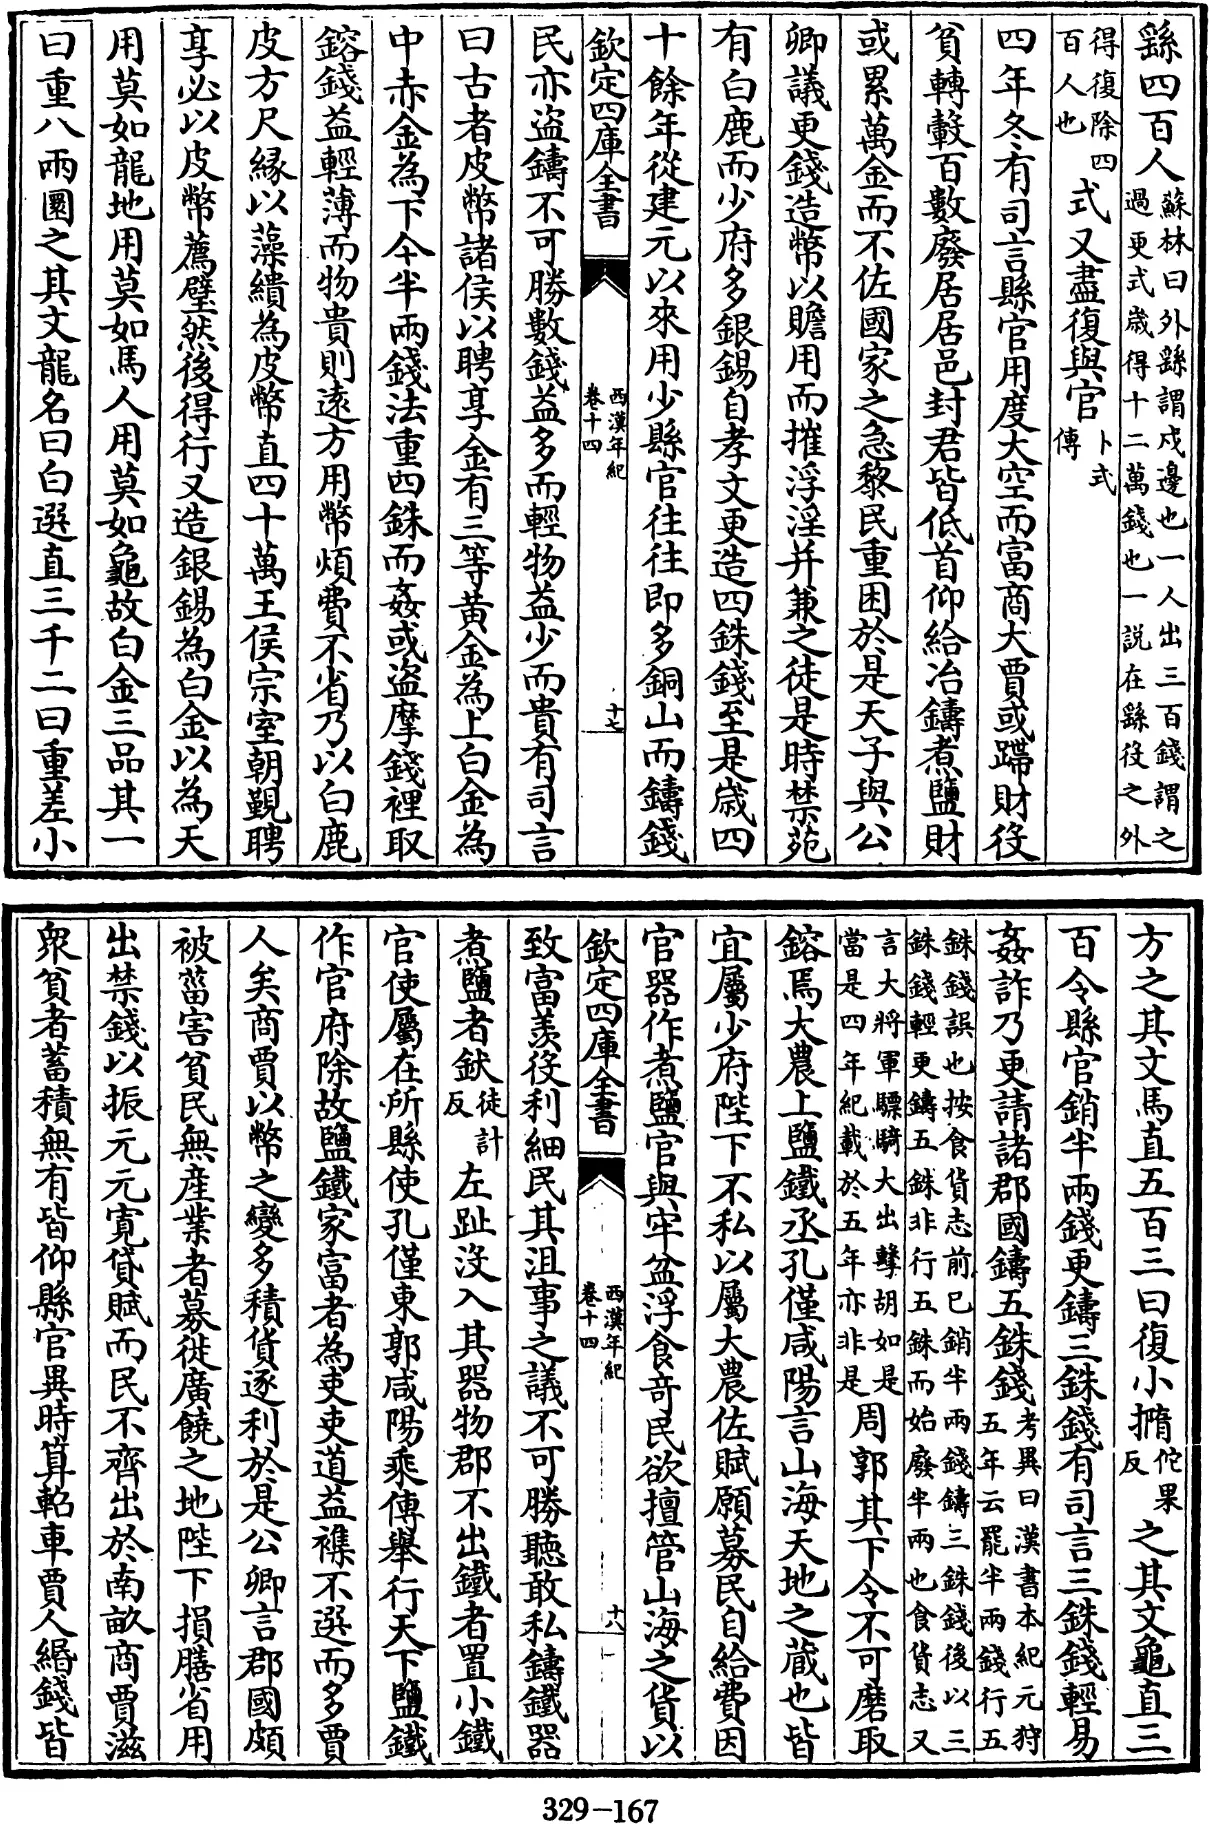 繇四百人蘇林曰外繇謂戍邊也一人出三百錢謂之過更式歲得十二萬錢也一説在繇役之外
得復除四百人也式又盡復與官卜式傳
四年冬有司言縣官用度大空而富商大賈或蹛財役
貧轉轂百數廢居居邑封君皆低首仰給冶鑄煮鹽財
或累萬金而不佐國家之急黎民重困於是天子與公
卿議更錢造幣以贍用而摧浮淫并兼之徒是時禁苑
有白鹿而少府多銀錫自孝文更造四銖錢至是歲四
十餘年從建元以來用少縣官往往即多銅山而鑄錢
欽定四庫全書 西漢年紀 卷十四 十七
民亦盜鑄不可勝數錢益多而輕物益少而貴有司言
曰古者皮幣諸侯以聘享金有三等黃金為上白金為
中赤金為下今半兩錢法重四銖而姦或盜摩錢裡取
鎔錢益輕薄而物貴則遠方用幣煩費不省乃以白鹿
皮方尺緣以藻繢為皮幣直四十萬王侯宗室朝覲聘
享必以皮幣薦璧然後得行又造銀錫為白金以為天
用莫如龍地用莫如馬人用莫如龜故白金三品其一
曰重八兩圜之其文龍名曰白選直三千二曰重差小
方之其文馬直五百三曰復小撱佗果反之其文龜直三
百令縣官銷半兩錢更鑄三銖錢有司言三銖錢輕易
姦詐乃更請諸郡國鑄五銖錢考異曰漢書本紀元狩五年云罷半兩錢行五
銖錢誤也按食貨志前已銷半兩錢鑄三銖錢後以三銖錢輕更鑄五銖非行五銖而始廢半兩也食貨志又
言大將軍驃騎大出擊胡如是當是四年紀載於五年亦非是周郭其下令不可磨取
鎔焉大農上鹽鐵丞孔僅咸陽言山海天地之藏也皆
宜屬少府陛下不私以屬大農佐賦願募民自給費因
官器作煮鹽官與牢盆浮食竒民欲擅管山海之貨以
欽定四庫全書 西漢年紀 卷十四 十八
致富羨役利細民其沮事之議不可勝聽敢私鑄鐵器
煮鹽者釱徒計反左趾沒入其器物郡不出鐵者置小鐵
官使屬在所縣使孔僅東郭咸陽乘傳舉行天下鹽鐵
作官府除故鹽鐵家富者為吏吏道益襍不選而多賈
人矣商賈以幣之變多積貨逐利於是公卿言郡國頗
被菑害貧民無産業者募徙廣饒之地陛下損膳省用
出禁錢以振元元寬貸賦而民不齊出於南畝商賈滋
衆貧者蓄積無有皆仰縣官異時算軺車賈人緡錢皆
329-167